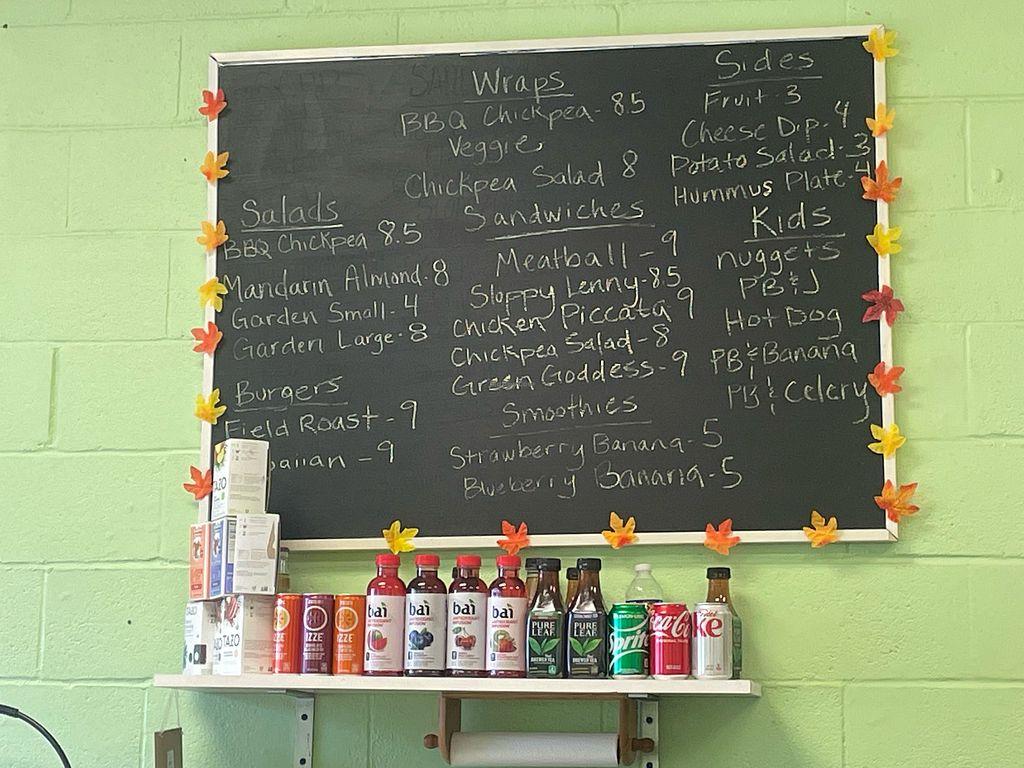 Wraps
BBQ Chickpea - 8.5
Veggie
Chickpea Salad 8
Sides
Fruit - 3
Cheese Dip - 4
Potato Salad - 3
Hummus Plate - 4
Salads
BBQ Chickpea 8.5
Mandarin Almond - 8
Garden Small - 4
Garden Large - 8
Sandwiches
Meatball - 9
Sloppy Lenny - 8.5
Chicken Piccata 9
Chickpea Salad - 8
Green Goddess - 9
Kids
nuggets
PB & J
Hot Dog
PB & Banana
PB & Celery
Burgers
Field Roast - 9
aiian - 9
Smoothies
Strawberry Banana - 5
Blueberry Banana - 5
TAZO
TAZO
TAZO
IZZE
IZZE
bai
bai
bai
bai
PURE LEAF
PURE LEAF
Sprite
Coca-Cola
Diet
Coke